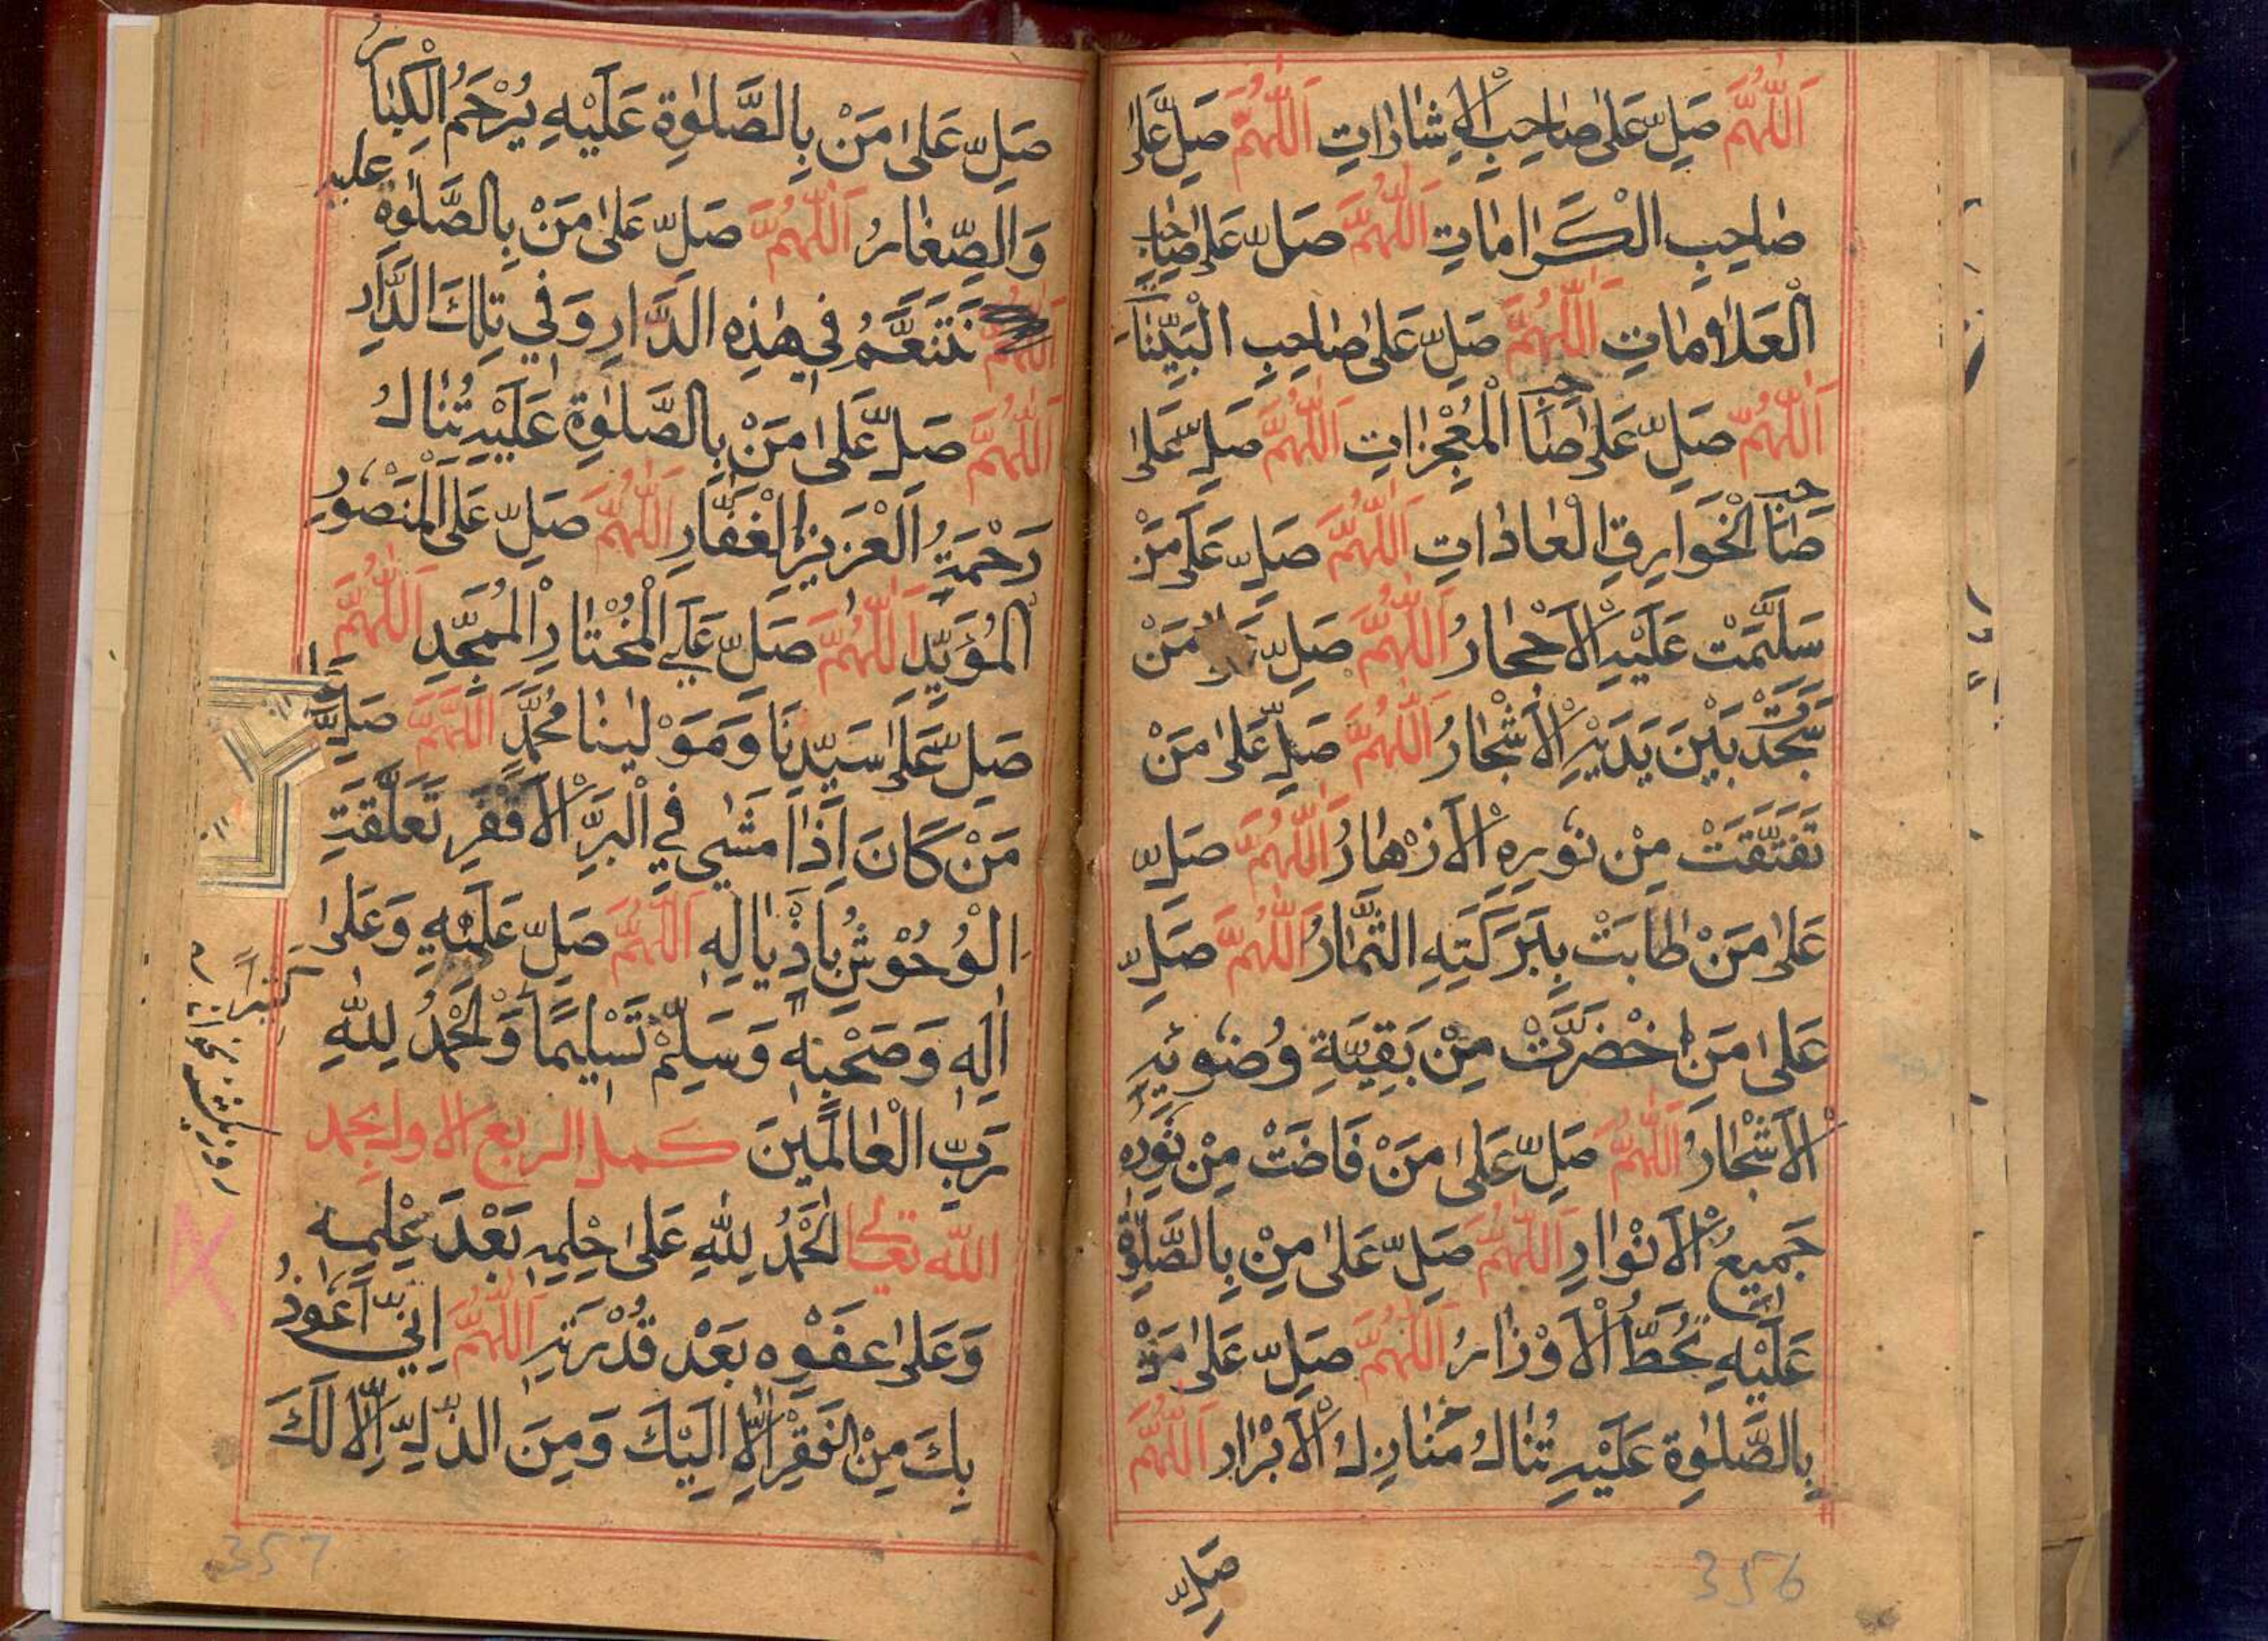 اَللّٰهُمَّ صَلِّ عَلٰى صَاحِبِ الْاِشَارَاتِ اَللّٰهُمَّ صَلِّ عَلٰى
صَاحِبِ الْكَرَامَاتِ اَللّٰهُمَّ صَلِّ عَلٰى صَاحِبِ
الْعَلَامَاتِ اَللّٰهُمَّ صَلِّ عَلٰى صَاحِبِ الْبَيِّنَاتِ
اَللّٰهُمَّ صَلِّ عَلٰى صَاحِبِ الْمُعْجِزَاتِ اَللّٰهُمَّ صَلِّ عَلٰى
صَاحِبِ الْخَوَارِقِ الْعَادَاتِ اَللّٰهُمَّ صَلِّ عَلٰى مَنْ
سَلَّمَتْ عَلَيْهِ الْاَحْجَارُ اَللّٰهُمَّ صَلِّ عَلٰى مَنْ
سَجَدَتْ بَيْنَ يَدَيْهِ الْاَشْجَارُ اَللّٰهُمَّ صَلِّ عَلٰى مَنْ
تَفَتَّقَتْ مِنْ نُورِهِ الْاَزْهَارُ اَللّٰهُمَّ صَلِّ
عَلٰى مَنْ طَابَتْ بِبَرَكَتِهِ الثِّمَارُ اَللّٰهُمَّ صَلِّ
عَلٰى مَنِ اخْضَرَّتْ مِنْ بَقِيَّةِ وُضُوئِهِ
الْاَشْجَارُ اَللّٰهُمَّ صَلِّ عَلٰى مَنْ فَاضَتْ مِنْ نُورِهِ
جَمِيعُ الْاَنْوَارِ اَللّٰهُمَّ صَلِّ عَلٰى مِنْ بِالصَّلٰوةِ
عَلَيْهِ تُحَطُّ الْاَوْزَارُ اَللّٰهُمَّ صَلِّ عَلٰى مَنْ
بِالصَّلٰوةِ عَلَيْهِ تُنَالُ مَنَازِلُ الْاَبْرَارِ اَللّٰهُمَّ
صَلِّ
356
صَلِّ عَلٰى مَنْ بِالصَّلٰوةِ عَلَيْهِ يُرْحَمُ الْكِبَارُ
وَالصِّغَارُ اَللّٰهُمَّ صَلِّ عَلٰى مَنْ بِالصَّلٰوةِ عليه
نَتَنَعَّمُ فِي هٰذِهِ الدَّارِ وَفِي تِلْكَ الدَّارِ
اَللّٰهُمَّ صَلِّ عَلٰى مَنْ بِالصَّلٰوةِ عَلَيْهِ تُنَالُ
رَحْمَةُ الْعَزِيزِ الْغَفَّارِ اَللّٰهُمَّ صَلِّ عَلَى الْمَنْصُورِ
الْمُؤَيَّدِ اَللّٰهُمَّ صَلِّ عَلَى الْمُخْتَارِ الْمُمَجَّدِ اَللّٰهُمَّ
صَلِّ عَلٰى سَيِّدِنَا وَمَوْلٰينَا مُحَمَّدٍ اَللّٰهُمَّ صَلِّ عَلٰى
مَنْ كَانَ اِذَا مَشٰى فِي الْبَرِّ الْاَقْفَرِ تَعَلَّقَتِ
الْوُحُوْشُ بِاَذْيَالِهِ اَللّٰهُمَّ صَلِّ عَلَيْهِ وَعَلٰى
اٰلِهِ وَصَحْبِهِ وَسَلِّمْ تَسْلِيمًا وَالْحَمْدُ لِلّٰهِ
كثيراً
رَبِّ الْعَالَمِينَ كمل الربع الاول بحمد
الله تعالى اَلْحَمْدُ لِلّٰهِ عَلٰى حِلْمِهِ بَعْدَ عِلْمِهِ
وَعَلٰى عَفْوِهِ بَعْدَ قُدْرَتِهِ اَللّٰهُمَّ اِنِّي اَعُوذُ
بِكَ مِنَ الْفَقْرِ اِلَّا اِلَيْكَ وَمِنَ الذُّلِّ اِلَّا لَكَ
357